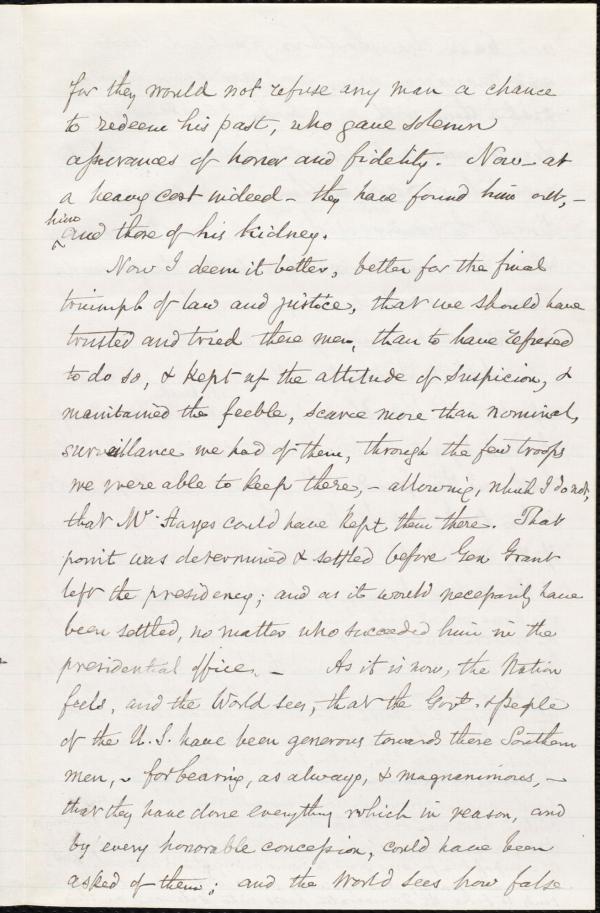 for they would not refuse any man a chance
to redeem his past, who gave solemn
assurances of honor and fidelity. Now - at
a heavy cost indeed - they have found him out, -
him
and those of his kidney.
Now I deem it better, better for the final
triumph of law and justice, that we should have
trusted and tried these men, than to have refused
to do so, & kept up the attitude of suspicion, &
maintained the feeble, scarce more than nominal,
surveillance we had of them, through the few troops
we were able to keep there, - allowing, which I do not,
that Mr. Hayes could have kept them there. That
point was determined & settled before Gen Grant
left the presidency; and as it would necessarily have
been settled, no matter who succeeded him in the
presidential office. - As it is now, the Nation
feels, and the World sees, that the Govt. & people
of the U.S. have been generous towards these Southern
men, - forbearing, as always, & magnanimous, -
that they have done everything which in reason, and
by every honorable concession, could have been
asked of them; and the World sees how false